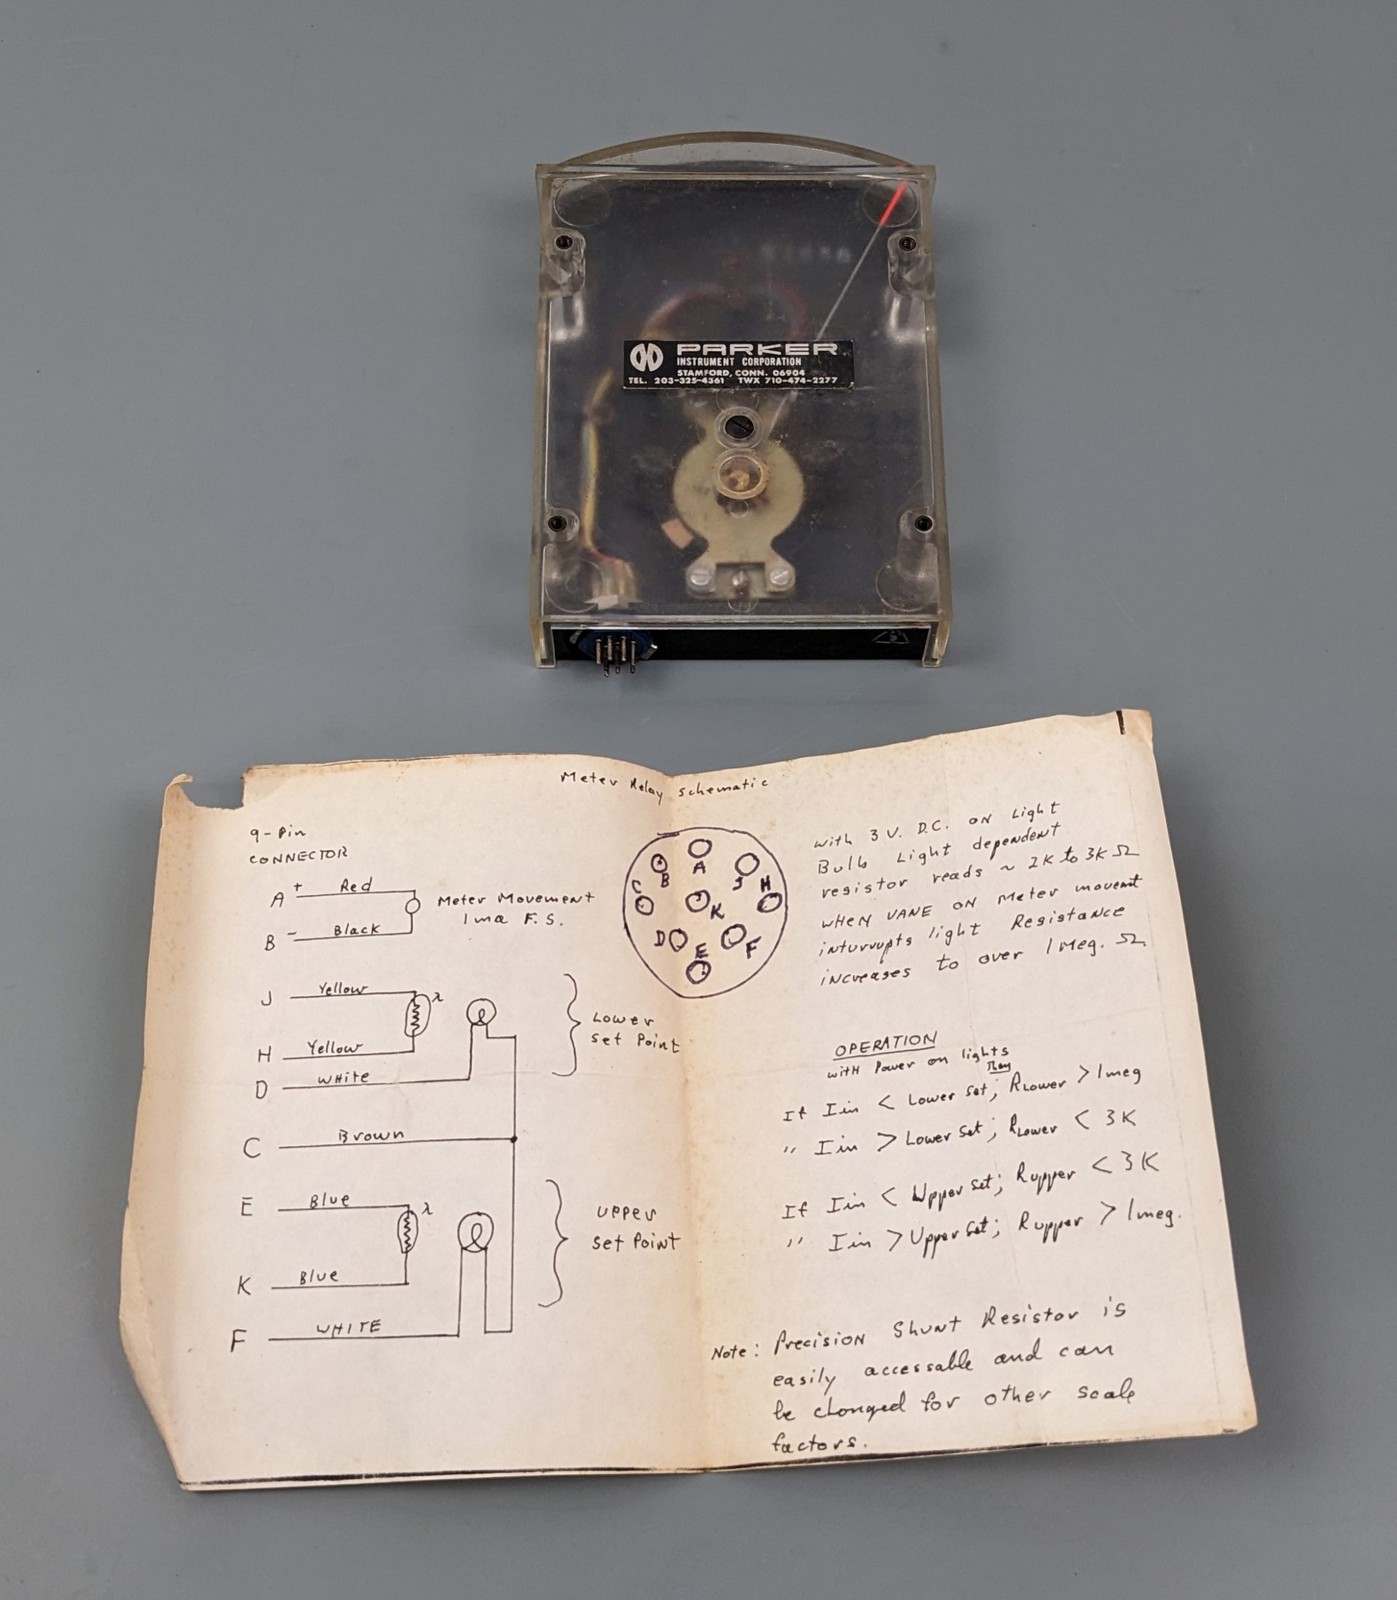 PARKER
INSTRUMENT CORPORATION
STAMFORD, CONN. 06904
TEL. 203-325-4361 TWX 710-474-2277
Meter Relay Schematic
9-Pin
CONNECTOR
A + Red
B - Black
Meter Movement
1 ma F.S.
J Yellow λ
H Yellow
D WHite
Lower
Set Point
C Brown
E Blue λ
K Blue
F WHITE
Upper
Set Point
A
B
J
C
H
K
D
F
E
with 3 V. D.C. on Light
Bulb Light dependent
resistor reads ~ 2K to 3K Ω
WHEN VANE ON Meter movemt
inturrupts light Resistance
increases to over 1 Meg. Ω
OPERATION
with Power on lights
If Iin < Lower Set; Then RLower > 1meg
" Iin > Lower Set; RLower < 3K
If Iin < Upper Set; Rupper < 3K
" Iin > Upper Set; Rupper > 1meg.
Note: Precision Shunt Resistor is
easily accessable and can
be changed for other scale
factors.